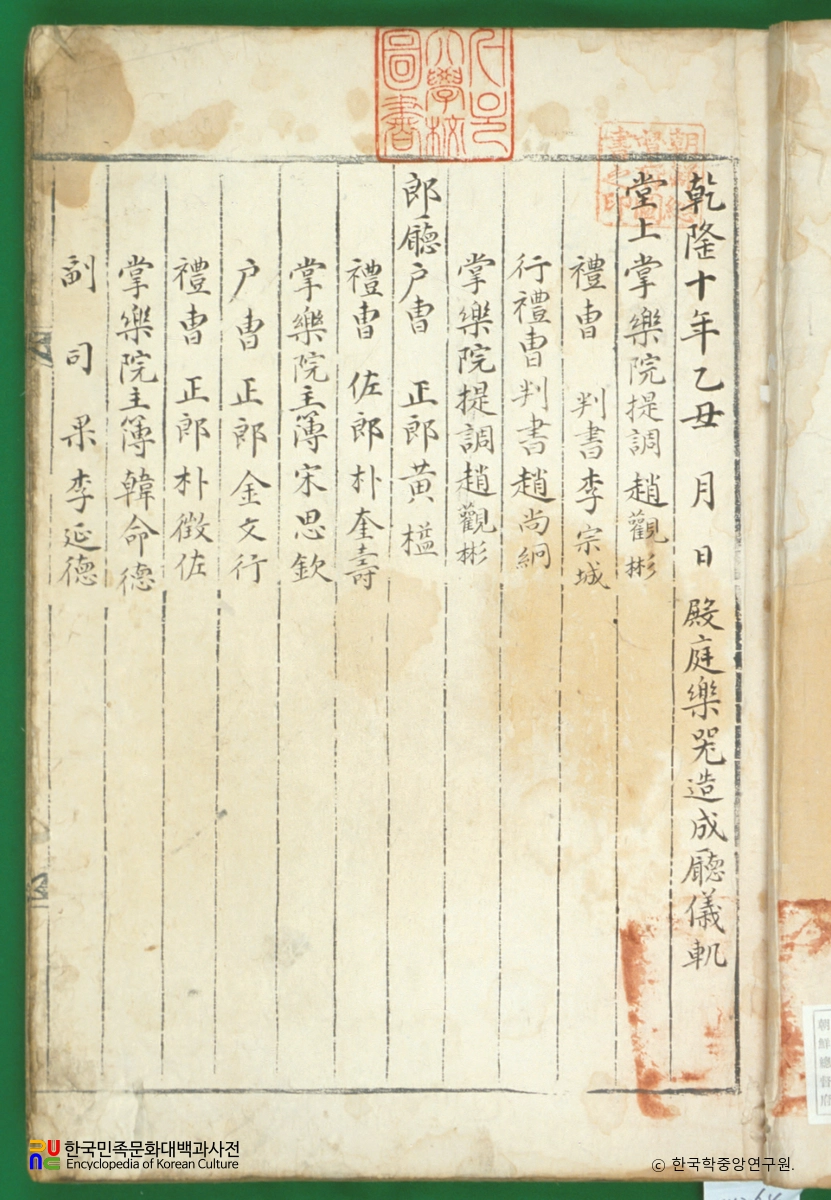 乾隆十年乙丑 月 日 殿庭樂器造成廳儀軌
堂上掌樂院提調趙觀彬
禮曺 判書李宗城
行禮曺判書趙尚絅
掌樂院提調趙觀彬
郎廳戶曺 正郎黃榏
禮曺 佐郎朴奎壽
掌樂院主簿宋思欽
戶曺 正郎金文行
禮曺 正郎朴徵佐
掌樂院主簿韓命德
副司果李延德
朝鮮總督府圖書之印
大學校圖書
朝鮮總督府
한국민족문화대백과사전
Encyclopedia of Korean Culture
© 한국학중앙연구원.